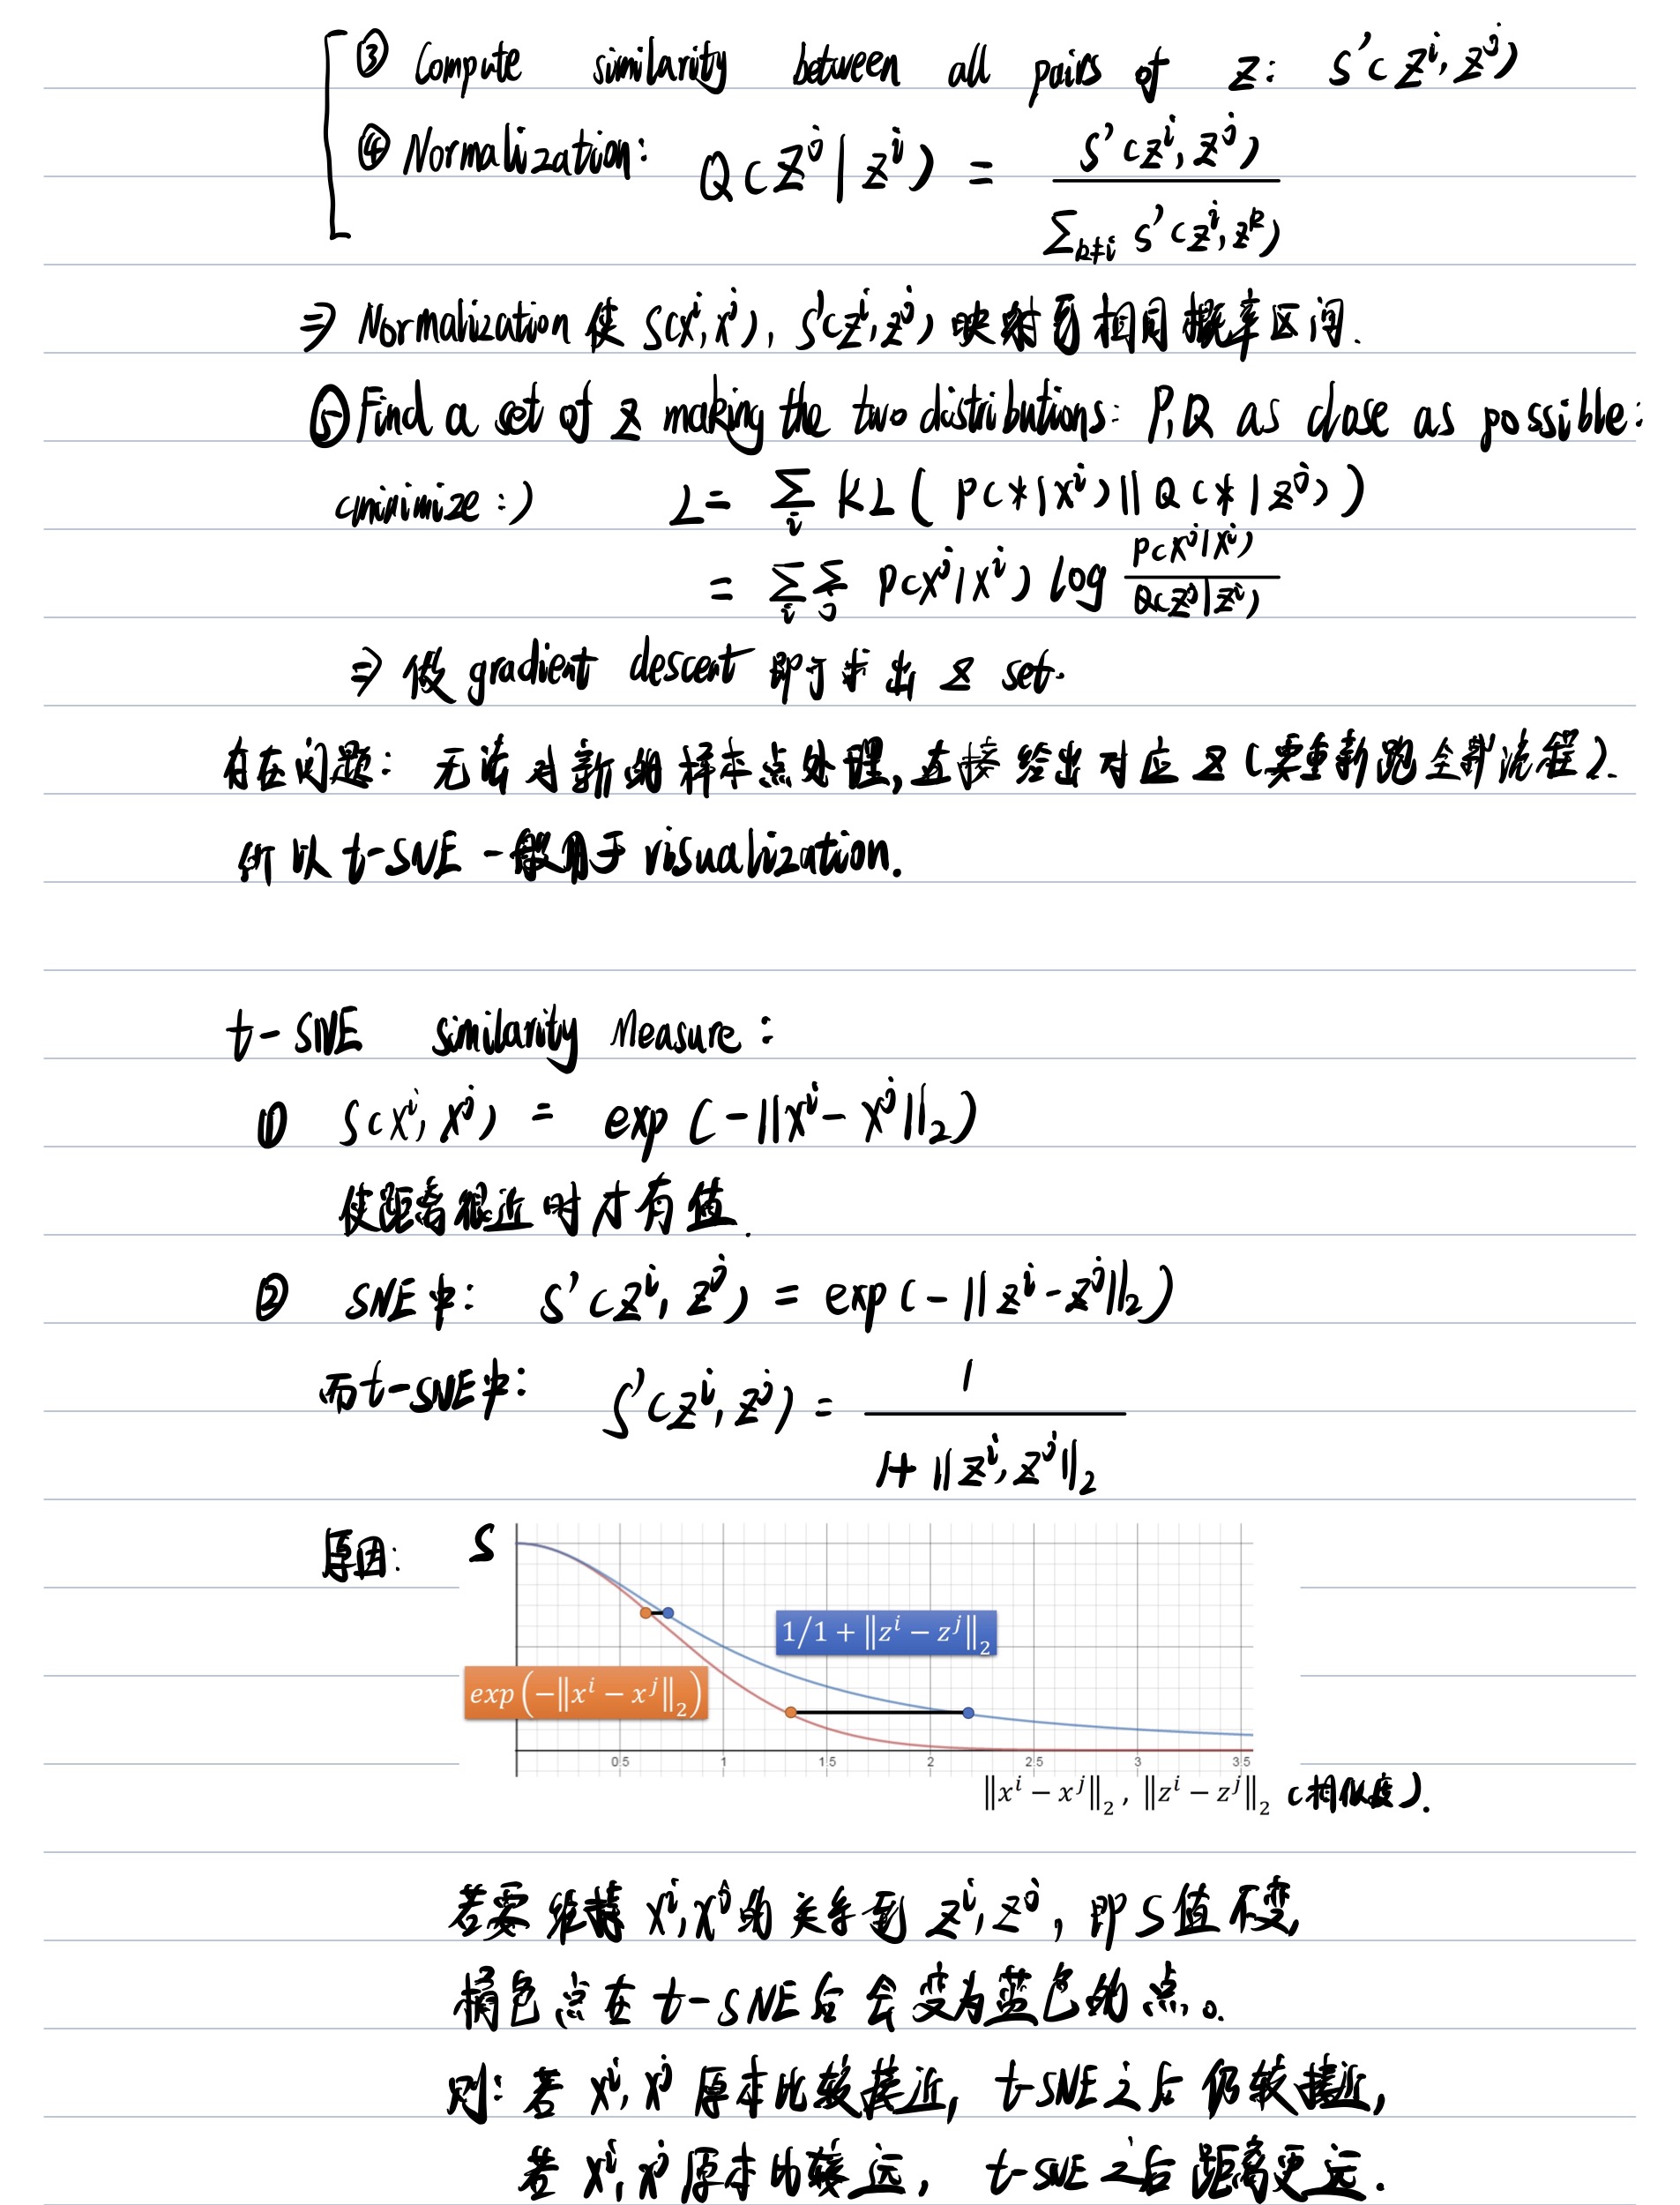 ③ Compute similarity between all pairs of z: S'(zⁱ, zʲ)
④ Normalization: Q(zʲ|zⁱ) = S'(zⁱ, zʲ) / Σ_{k≠i} S'(zⁱ, zᵏ)
⇒ Normalization 使 S(xⁱ, xʲ), S'(zⁱ, zʲ) 映射到相同概率区间.
⑤ Find a set of z making the two distributions: P, Q as close as possible:
(minimize:) L = Σ_i KL( P(*|xⁱ) || Q(*|zʲ) )
= Σ_i Σ_j P(xʲ|xⁱ) log P(xʲ|xⁱ) / Q(zʲ|zⁱ)
⇒ 做 gradient descent 即可求出 z set.
存在问题: 无法对新的样本点处理, 直接给出对应 z (要重新跑全部流程).
所以 t-SNE 一般用于 visualization.
t-SNE similarity Measure:
① S(xⁱ, xʲ) = exp(-||xⁱ - xʲ||₂)
使距离很近时才有值.
② SNE中: S'(zⁱ, zʲ) = exp(-||zⁱ - zʲ||₂)
而t-SNE中: S'(zⁱ, zʲ) = 1 / 1+||zⁱ, zʲ||₂
原因: S
1/1 + ‖zⁱ − zʲ‖₂
exp(−‖xⁱ − xʲ‖₂)
0.5 1 1.5 2 2.5 3 3.5
‖xⁱ − xʲ‖₂, ‖zⁱ − zʲ‖₂ (相似度).
若要维持 xⁱ, xʲ 的关系到 zⁱ, zʲ, 即S值不变,
橘色点在 t-SNE后会变为蓝色的点。
则: 若 xⁱ, xʲ 原本比较接近, t-SNE之后仍较接近,
若 xⁱ, xʲ 原本比较远, t-SNE之后距离更远.